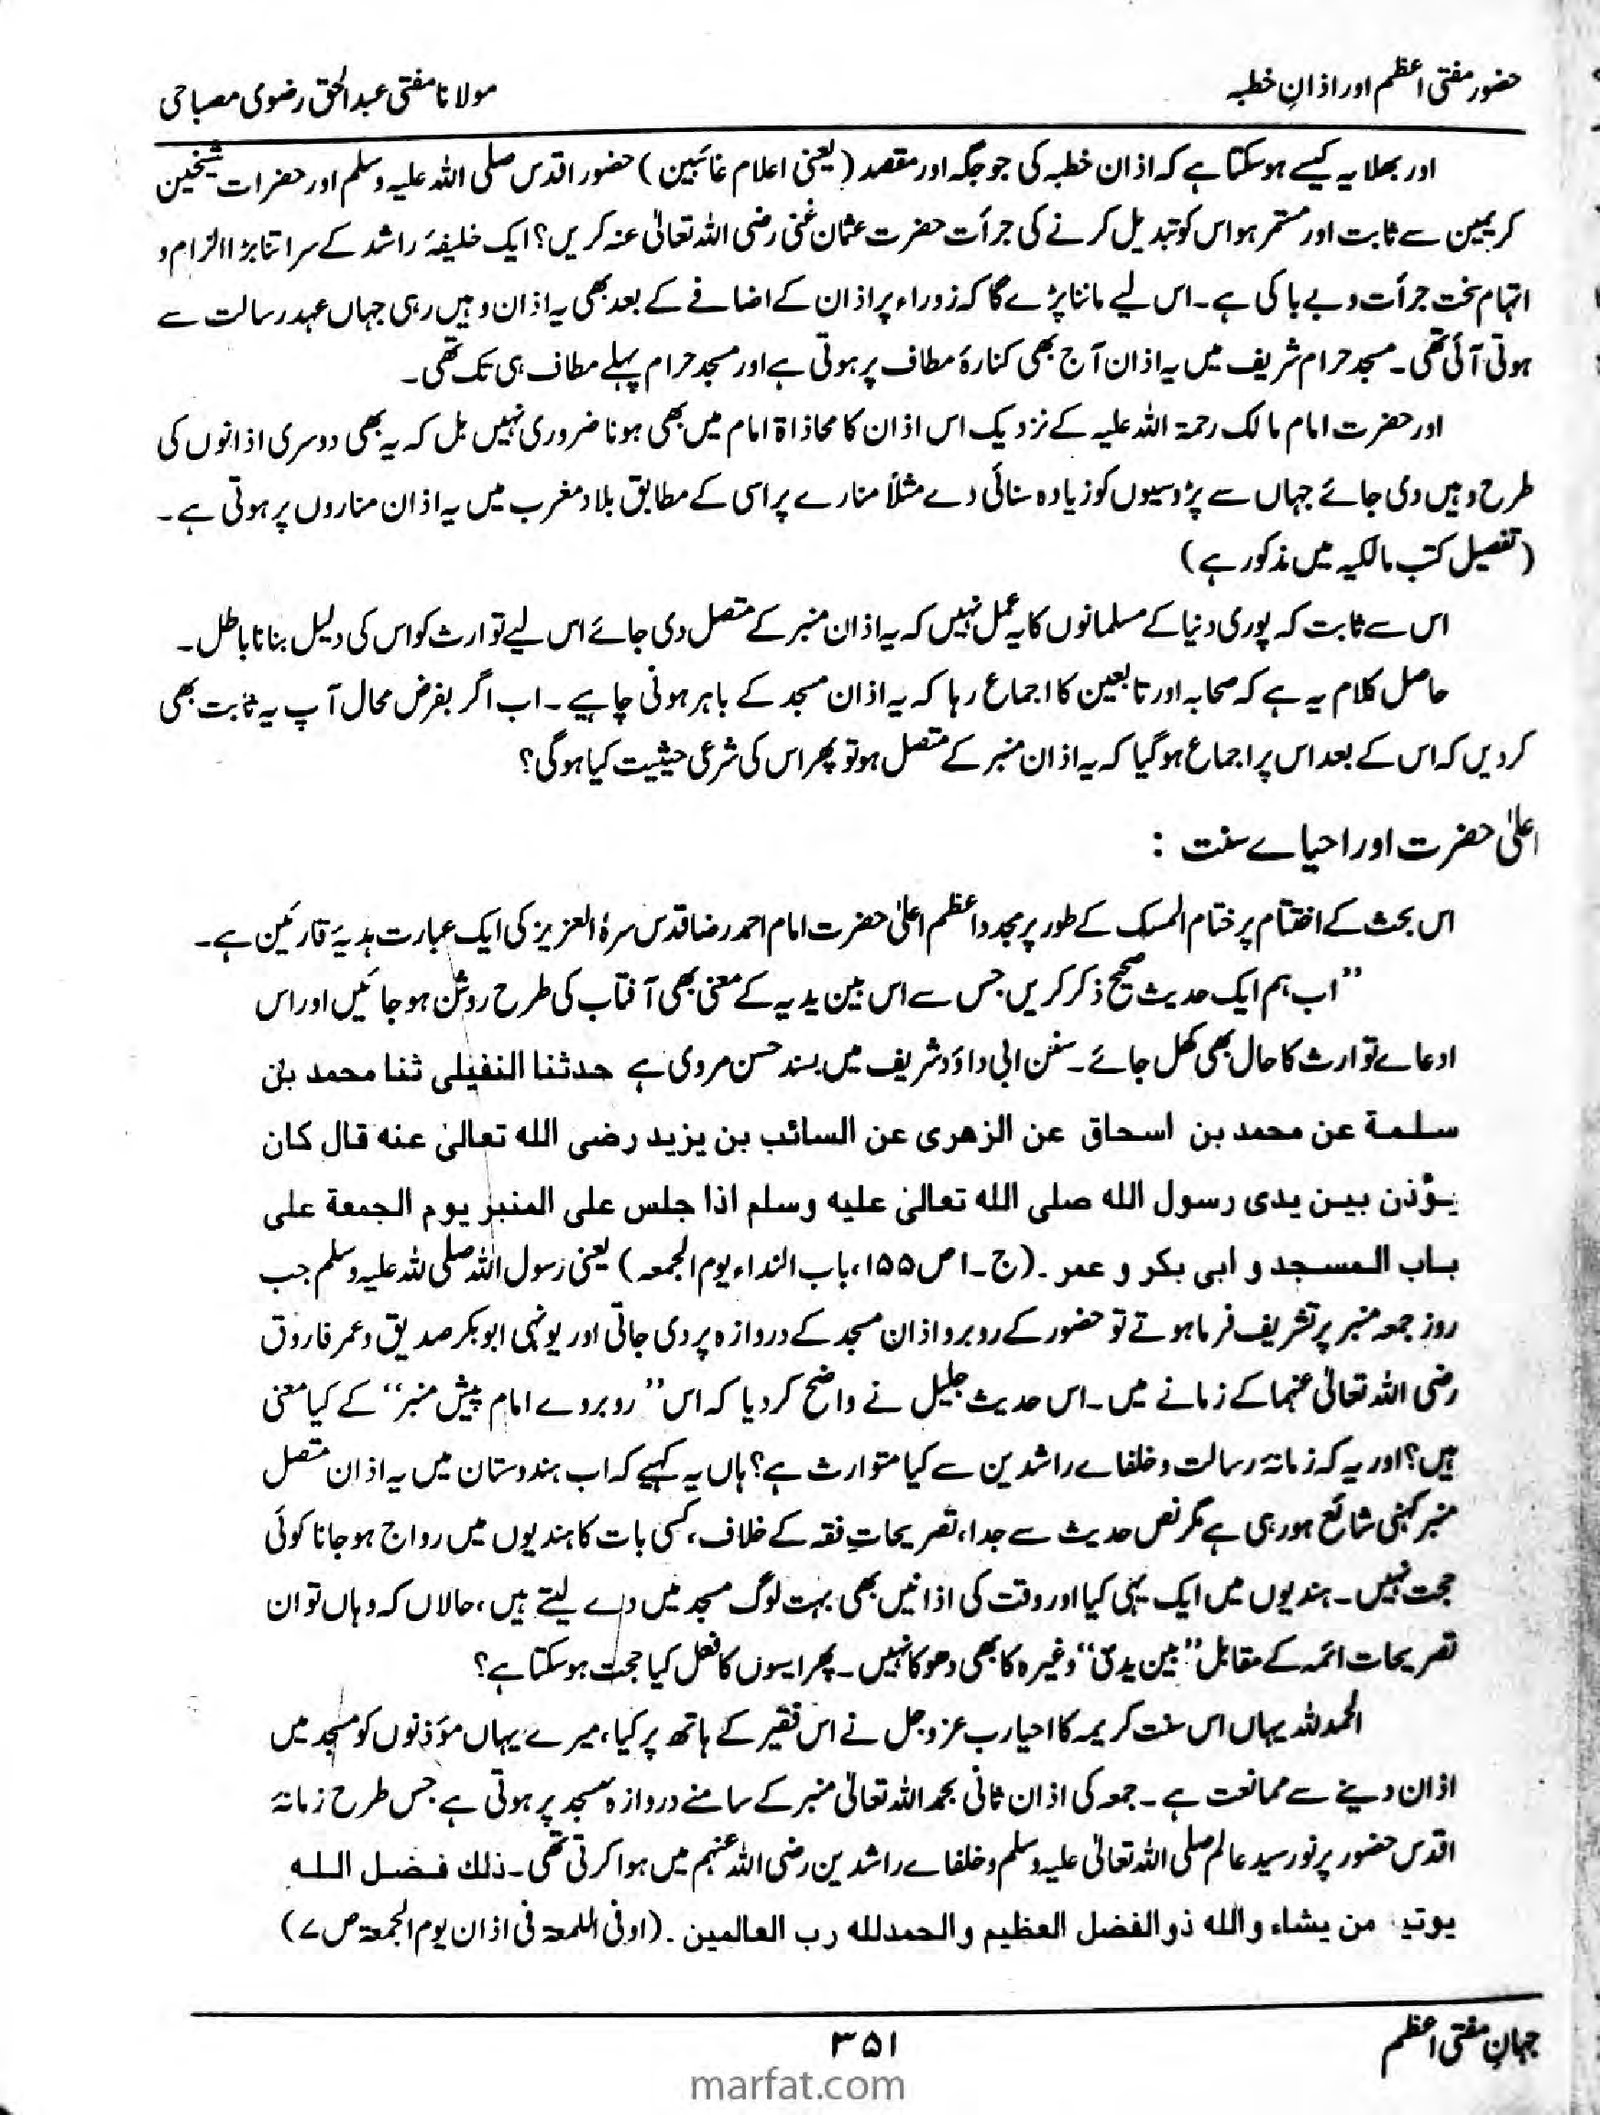 حضور مفتی اعظم اور اذانِ خطبہ
مولانا مفتی عبدالحق رضوی مصباحی
اور بھلا یہ کیسے ہوسکتا ہے کہ اذان خطبہ کی جو جگہ اور مقصد (یعنی اعلام غائبین) حضور اقدس صلی اللہ علیہ وسلم اور حضرات شیخین
کریمین سے ثابت اور مستمر ہو اس کو تبدیل کرنے کی جرأت حضرت عثمان غنی رضی اللہ تعالیٰ عنہ کریں؟ ایک خلیفۂ راشد کے سر اتنا بڑا الزام و
اتہام سخت جرأت و بے باکی ہے۔ اس لیے ماننا پڑے گا کہ زوراء پر اذان کے اضافے کے بعد بھی یہ اذان وہیں رہی جہاں عہد رسالت سے
ہوتی آئی تھی۔ مسجد حرام شریف میں یہ اذان آج بھی کنارۂ مطاف پر ہوتی ہے اور مسجد حرام پہلے مطاف ہی تک تھی۔
اور حضرت امام مالک رحمۃ اللہ علیہ کے نزدیک اس اذان کا محاذاۃ امام میں بھی ہونا ضروری نہیں بل کہ یہ بھی دوسری اذانوں کی
طرح وہیں دی جائے جہاں سے پڑوسیوں کو زیادہ سنائی دے مثلاً منارے پر اسی کے مطابق بلاد مغرب میں یہ اذان مناروں پر ہوتی ہے۔
(تفصیل کتب مالکیہ میں مذکور ہے)
اس سے ثابت کہ پوری دنیا کے مسلمانوں کا یہ عمل نہیں کہ یہ اذان منبر کے متصل دی جائے اس لیے توارث کو اس کی دلیل بنانا باطل۔
حاصل کلام یہ ہے کہ صحابہ اور تابعین کا اجماع رہا کہ یہ اذان مسجد کے باہر ہونی چاہیے۔ اب اگر بفرض محال آپ یہ ثابت بھی
کردیں کہ اس کے بعد اس پر اجماع ہوگیا کہ یہ اذان منبر کے متصل ہو تو پھر اس کی شرعی حیثیت کیا ہوگی؟
اعلیٰ حضرت اور احیاے سنت :
اس بحث کے اختتام پر ختام المسک کے طور پر مجدد اعظم اعلیٰ حضرت امام احمد رضا قدس سرہٗ العزیز کی ایک عبارت ہدیۂ قارئین ہے۔
”اب ہم ایک حدیث صحیح ذکر کریں جس سے اس بین یدیہ کے معنی بھی آفتاب کی طرح روشن ہوجائیں اور اس
ادعاے توارث کا حال بھی کھل جائے۔ سنن ابی داؤد شریف میں بسند حسن مروی ہے حدثنا النفیلی ثنا محمد بن
سلمة عن محمد بن اسحاق عن الزھری عن السائب بن یزید رضی الله تعالیٰ عنه قال کان
یؤذن بین یدی رسول الله صلی الله تعالیٰ علیه وسلم اذا جلس علی المنبر یوم الجمعة علی
باب المسجد و ابی بکر و عمر۔ (ج۔۱ ص ۱۵۵، باب النداء یوم الجمعہ) یعنی رسول اللہ صلی للہ علیہ وسلم جب
روز جمعہ منبر پر تشریف فرما ہوتے تو حضور کے روبرو اذان مسجد کے دروازہ پر دی جاتی اور یونہی ابوبکر صدیق و عمر فاروق
رضی اللہ تعالیٰ عنہما کے زمانے میں۔ اس حدیث جلیل نے واضح کردیا کہ اس ”روبروے امام پیش منبر“ کے کیا معنی
ہیں؟ اور یہ کہ زمانۂ رسالت و خلفاے راشدین سے کیا متوارث ہے؟ ہاں یہ کہیے کہ اب ہندوستان میں یہ اذان متصل
منبر کہنی شائع ہو رہی ہے مگر نص حدیث سے جدا، تصریحاتِ فقہ کے خلاف، کسی بات کا ہندیوں میں رواج ہوجانا کوئی
حجت نہیں۔ ہندیوں میں ایک یہی کیا اور وقت کی اذانیں بھی بہت لوگ مسجد میں دے لیتے ہیں، حالاں کہ وہاں تو ان
تصریحات ائمہ کے مقابل ”بین یدی“ وغیرہ کا بھی دھوکا نہیں۔ پھر ایسوں کا فعل کیا حجت ہوسکتا ہے؟
الحمد للہ یہاں اس سنت کریمہ کا احیا رب عزوجل نے اس فقیر کے ہاتھ پر کیا، میرے یہاں مؤذنوں کو مسجد میں
اذان دینے سے ممانعت ہے۔ جمعہ کی اذان ثانی بحمد اللہ تعالیٰ منبر کے سامنے دروازہ مسجد پر ہوتی ہے جس طرح زمانۂ
اقدس حضور پر نور سید عالم صلی اللہ تعالیٰ علیہ وسلم و خلفاے راشدین رضی اللہ عنہم میں ہوا کرتی تھی۔ ذلك فضل الله
یوتیہ من یشاء والله ذو الفضل العظیم والحمدلله رب العالمین۔ (اوفی اللمعۃ فی اذان یوم الجمعۃ ص ۷)
جہانِ مفتی اعظم
۳۵۱
marfat.com